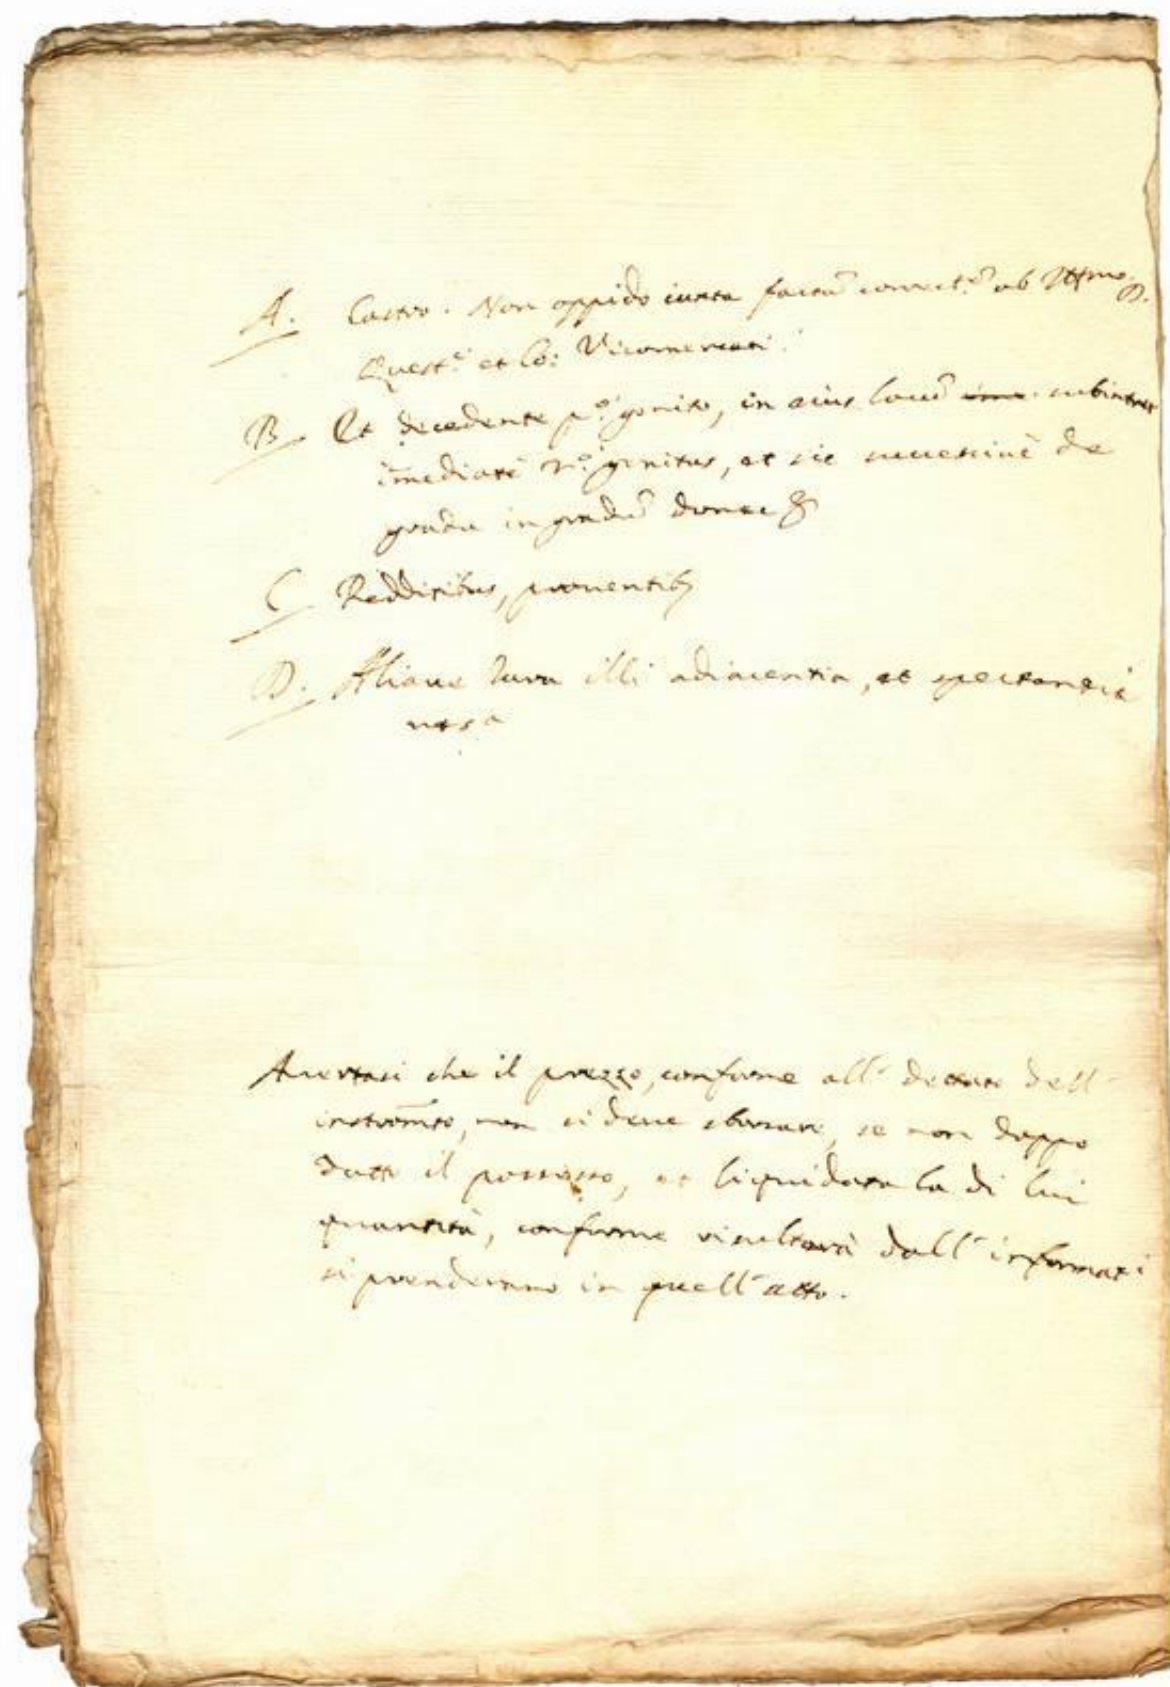 A. Castro. Non oppido iuxta factū correct.ē ab Ill.mo D.
Quest.e et Co: Vicomercati.
B. Et decedente p.o genito, in eius locū subintret
īmediatè 2.o genitus, et sic successivè de
gradu in gradū donec &
C Redditibus, proventib9
D. Aliave iura illi adiacentia, et spectantia
ut s.a
Avertasi che il prezzo, conforme all' dettato dell'
instrom̄to, non si deve sborsare, se non doppo
dato il possesso, et liquidata la di lui
quantità, conforme risultarà dall' informat.i
si prenderano in quell' atto.